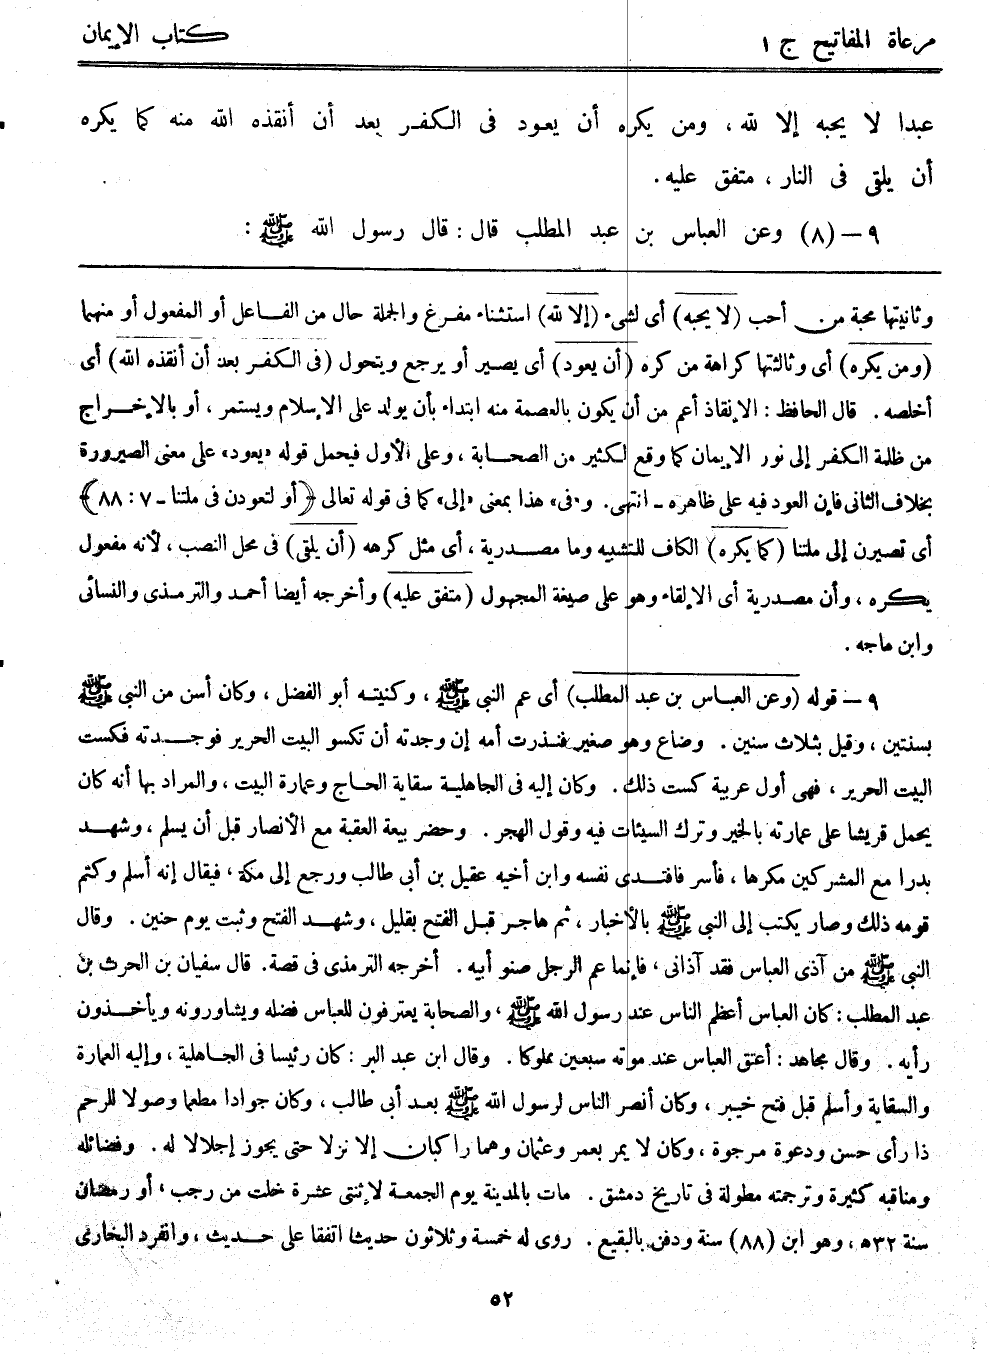 مرعاة المفاتيح ج ١
كتاب الإيمان
عبدا لا يحبه إلا لله ، ومن يكره أن يعود فى الكفر بعد أن أنقذه الله منه كما يكره
أن يلقى فى النار ، متفق عليه .
٩ – (٨) وعن العباس بن عبد المطلب قال : قال رسول الله ﷺ :
وثانيتها محبة من أحب (لا يحبه) أى لشىء (إلا لله) استثناء مفرغ والجملة حال من الفاعل أو المفعول أو منهما
(ومن يكره) أى وثالثتها كراهة من كره (أن يعود) أى يصير أو يرجع ويتحول (فى الكفر بعد أن أنقذه الله) أى
أخلصه . قال الحافظ : الإنقاذ أعم من أن يكون بالعصمة منه ابتداء بأن يولد على الإسلام ويستمر ، أو بالإخراج
من ظلمة الكفر إلى نور الإيمان كما وقع لكثير من الصحابة ، وعلى الأول فيحمل قوله «يعود» على معنى الصيرورة
بخلاف الثانى فإن العود فيه على ظاهره – انتهى . و«فى» هذا بمعنى «إلى» كما فى قوله تعالى ﴿أو لتعودن فى ملتنا – ٧ : ٨٨﴾
أى تصيرن إلى ملتنا (كما يكره) الكاف للتشبيه وما مصدرية ، أى مثل كرهه (أن يلقى) فى محل النصب ، لأنه مفعول
يكره ، وأن مصدرية أى الإلقاء وهو على صيغة المجهول (متفق عليه) وأخرجه أيضا أحمد والترمذى والنسائى
وابن ماجه .
٩ – قوله (وعن العباس بن عبد المطلب) أى عم النبى ﷺ ، وكنيته أبو الفضل ، وكان أسن من النبى ﷺ
بسنتين ، وقيل بثلاث سنين . وضاع وهو صغير فنذرت أمه إن وجدته أن تكسو البيت الحرير فوجدته فكست
البيت الحرير ، فهى أول عربية كست ذلك . وكان إليه فى الجاهلية سقاية الحاج وعمارة البيت ، والمراد بها أنه كان
يحمل قريشا على عمارته بالخير وترك السيئات فيه وقول الهجر . وحضر بيعة العقبة مع الأنصار قبل أن يسلم ، وشهد
بدرا مع المشركين مكرها ، فأسر فافتدى نفسه وابن أخيه عقيل بن أبى طالب ورجع إلى مكة ، فيقال إنه أسلم وكتم
قومه ذلك وصار يكتب إلى النبى ﷺ بالأخبار ، ثم هاجر قبل الفتح بقليل ، وشهد الفتح وثبت يوم حنين . وقال
النبى ﷺ من آذى العباس فقد آذانى ، فإنما عم الرجل صنو أبيه . أخرجه الترمذى فى قصة . قال سفيان بن الحرث بن
عبد المطلب : كان العباس أعظم الناس عند رسول الله ﷺ ، والصحابة يعترفون للعباس فضله ويشاورونه ويأخذون
رأيه . وقال مجاهد : أعتق العباس عند موته سبعين مملوكا . وقال ابن عبد البر : كان رئيسا فى الجاهلية ، وإليه العمارة
والسقاية وأسلم قبل فتح خيبر ، وكان أنصر الناس لرسول الله ﷺ بعد أبى طالب ، وكان جوادا مطعما وصولا للرحم
ذا رأى حسن ودعوة مرجوة ، وكان لا يمر بعمر وعثمان وهما راكبان إلا نزلا حتى يجوز إجلالا له . وفضائله
ومناقبه كثيرة وترجمته مطولة فى تاريخ دمشق . مات بالمدينة يوم الجمعة لاثنتى عشرة خلت من رجب ، أو رمضان
سنة ٣٢ه ، وهو ابن (٨٨) سنة ودفن بالبقيع . روى له خمسة وثلاثون حديثا اتفقا على حديث ، وانفرد البخارى
٥٢